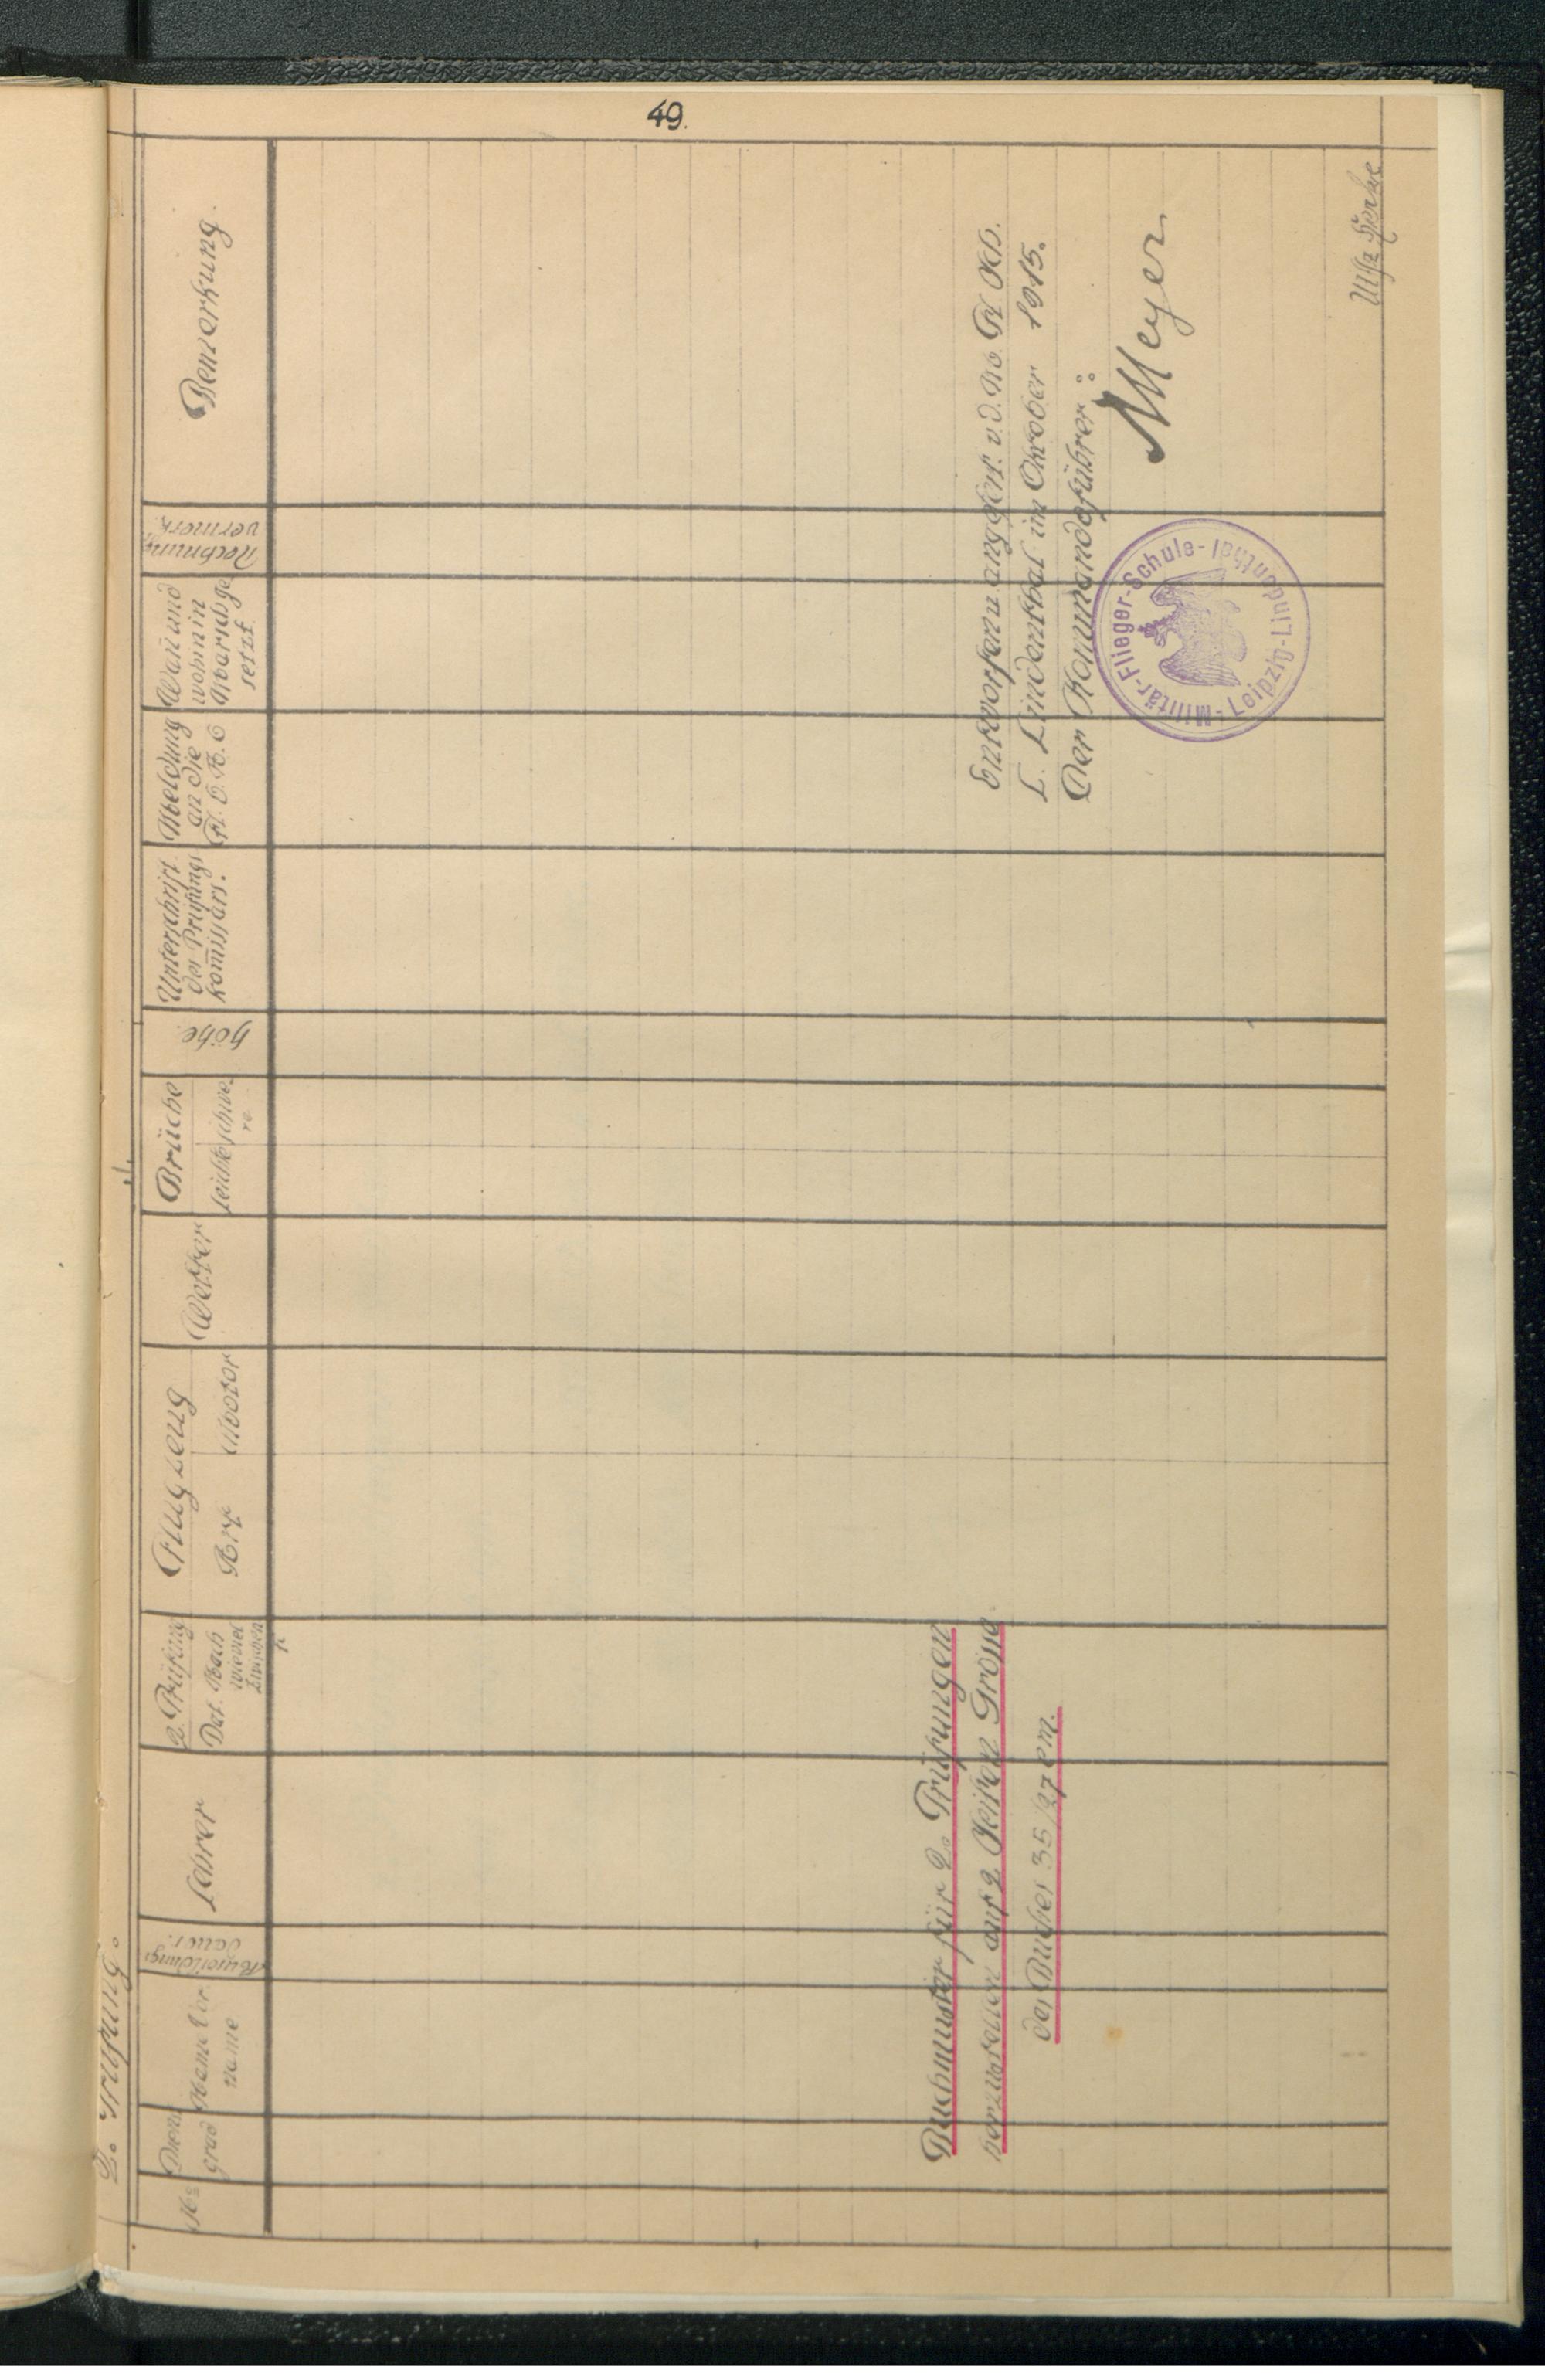 49.
2. Prüfung.
No
Dienst
grad
Name Vor
name
Ausbildungs
dauer.
Lehrer
2. Prüfung
Dat. Nach
wieviel
Stunden
Flugzeug
Typ Motor
Wetter
Brüche
leichte schwe
re
Höhe.
Unterschrift
des Prüfungs
kommissars.
Meldung
an die
Wan und
wohin in
Marsch ge
setzt
Rechnungs
vermerk.
Bemerkung.
Buchmuster für 2. Prüfungen
herzustellen auf 2 Seiten Grösse
des Buches 35/27 cm.
L. Lindenthal im Oktober 1915.
Der Kommandoführer:
Meyer
Militär-Flieger-Schule - Leipzig-Lindenthal